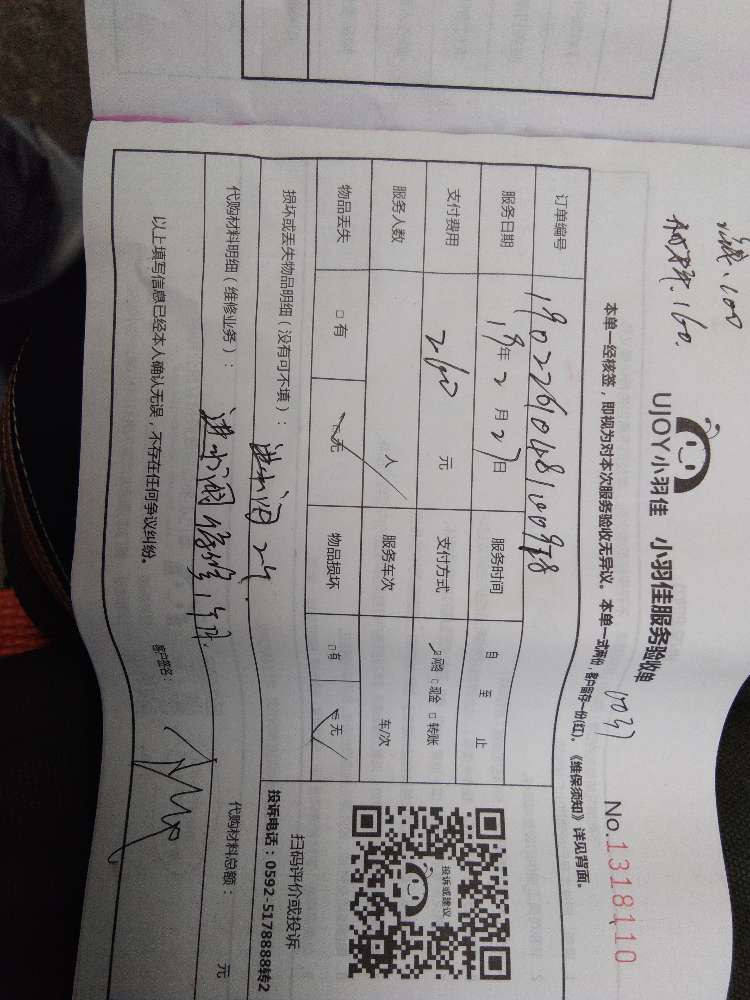 减:100
160.
UJOY小羽佳 小羽佳服务验收单 No.1318110
本单一经核签，即视为对本次服务验收无异议。本单一式两份，客户留存一份(红)。《维保须知》详见背面。
订单编号
服务日期 19年2月27日 服务时间 自 至 止
支付费用 260 元 支付方式 ☑网络 □现金 □转账
服务人数 人 服务车次 车/次
物品丢失 □有 ☑无 物品损坏 □有 ☑无
损坏或丢失物品明细（没有可不填）：
代购材料明细（维修业务）： 代购材料总额： 元
以上填写信息已经本人确认无误，不存在任何争议纠纷。 客户签名：
投诉或建议
扫码评价或投诉
投诉电话：0592-5178888转2